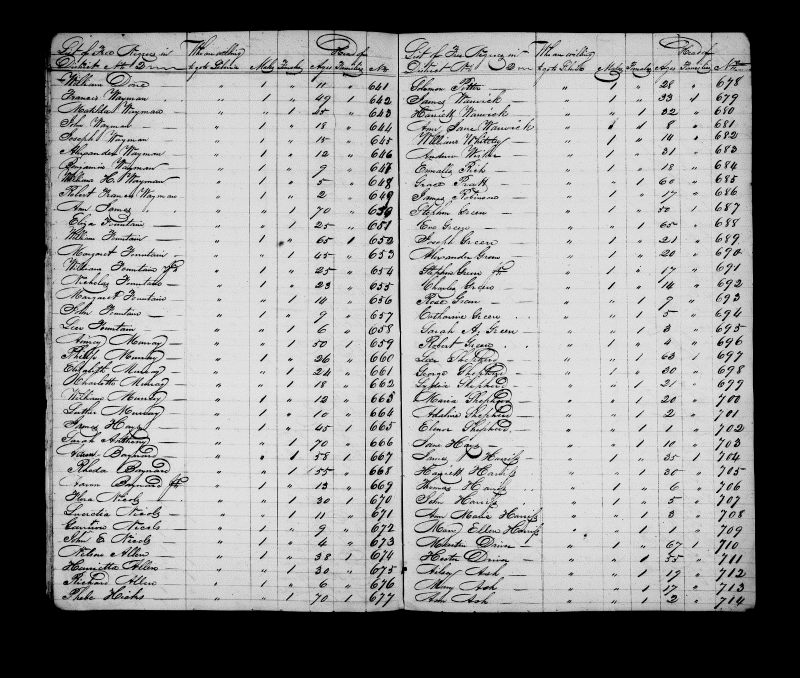 List of Free Negroes in | Who are willing | | | | Head of |
District No 2 | to go to Liberia | Males | Females | Ages | Families | No
William Done — " 1 " 11 " 641
Francis Wayman — " 1 " 49 1 642
Wayman — " " 1 45 " 643
John Wayman — " 1 " 18 " 644
Joseph Wayman — " 1 " 15 " 645
Alexander Wayman " 1 " 12 " 646
Benjamin Wayman " 1 " 9 " 647
William H. Wayman " 1 " 5 " 648
Robert Francis Wayman " 1 " 2 " 649
Ann James " " 1 70 " 650
Eliza Fountain — " " 1 25 " 651
William Fountain " 1 " 65 1 652
Margaret Fountain " " 1 45 " 653
William Fountain " 1 " 25 " 654
Nicholas Fountain — " 1 " 23 " 655
Margaret Fountain " " 1 14 " 656
John Fountain — " 1 " 9 " 657
Fountain " " 1 6 " 658
Murray — " " 1 50 1 659
Philip Murray " 1 " 26 " 660
Elizabeth Murray — " " 1 24 " 661
Charlotte Murray " " 1 18 " 662
William Murray " 1 " 12 " 663
Murray " 1 " 10 " 664
James — " 1 " 45 " 665
Sarah Anthony " " 1 70 " 666
Boynard — " 1 " 58 1 667
Rhoda Boynard " " 1 55 " 668
Boynard " 1 " 13 " 669
Nicols — " " 1 30 1 670
Lucretia Nicols — " " 1 11 " 671
Nicols " " 1 9 " 672
John E Nicols " 1 " 4 " 673
Allen — " 1 " 38 1 674
Henrietta Allen " " 1 30 " 675
Richard Allen " 1 " 6 " 676
Phebe Hicks — " " 1 70 1 677
List of Free Negroes in | Who are willing | | | | Head of |
District No 2 | to go to Liberia | Males | Females | Ages | Families | No
Solomon " 1 " 28 " 678
James Warwick — " 1 " 33 1 679
Harriett Warwick " " 1 32 " 680
Ann Jane Warwick " " 1 8 " 681
William " 1 " 14 " 682
Andrew — " 1 " 31 " 683
Rich — " " 1 18 " 684
Grace Pratt — " " 1 60 " 685
James Robinson " 1 " 17 " 686
Stephen Green — " 1 " 50 1 687
Eve Green — " " 1 65 " 688
Joseph Green " 1 " 21 " 689
Alexander Green — " 1 " 20 " 690
Stephen Green " 1 " 17 " 691
Charles Green — " 1 " 14 " 692
Rose Green — " " 1 9 " 693
Catharine Green " " 1 5 " 694
Sarah A. Green — " " 1 3 " 695
Robert Green " 1 " 4 " 696
Shepherd " " 1 63 1 697
George Shepherd " 1 " 30 " 698
Sophia Shepherd " " 1 21 " 699
Maria Shepherd " " 1 20 " 700
Adeline Shepherd " " 1 2 " 701
Elenor Shepherd — " " 1 1 " 702
Jane — " " 1 10 " 703
James Harriss " 1 " 35 1 704
Harriett Harriss " " 1 30 " 705
Thomas Harriss " 1 " 6 " 706
John Harriss — " 1 " 5 " 707
Ann Maria Harriss " " 1 3 " 708
Mary Ellen Harriss " " 1 1 " 709
Driver — " 1 " 67 1 710
Hester Driver " " 1 55 " 711
Ash " " 1 19 " 712
Mary Ash " " 1 17 " 713
Ann Ash — " " 1 2 " 714